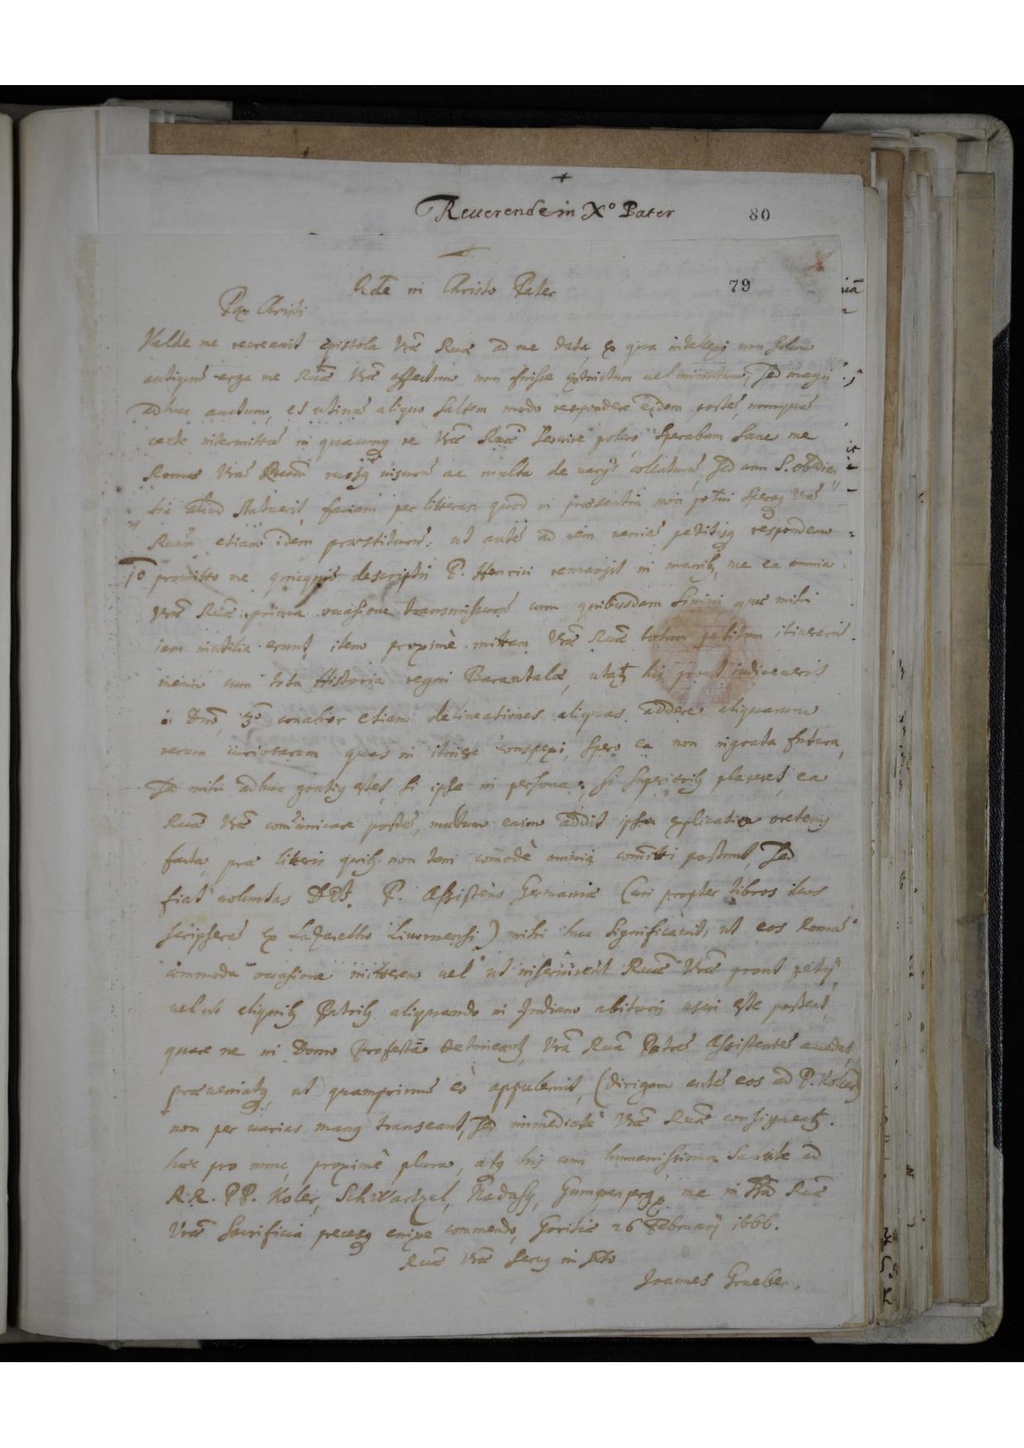 +
Reuerende in Xo Pater
80
Rde in Christo Pater
79
Pax Christi
Valde me recreauit epistola Vrae Rae ad me data ex qua intellexi non solum
antiquum erga me Rae Vrae affectum non fuisse extinctum uel sed magis
adhuc auctum, et utinam aliquo saltem modo respondere eidem possem, nunquam
certe intermittam in quacunq re Vrae Rae seruire potero. Sperabam sane me
Romae Vram Ram uisurum ac multa de varijs collaturum sed cum S. obedien
tia aliud statuerit, faciam per litteras quod in praesentia non potui speroq Vram
Ram etiam idem praestituram. ut autem ad rem ueniam petitisq respondeam
Io promitto me quicquid descripti P. Henrici remansit in manibq, me ea omnia
Vrae Rae prima occasione transmissurum cum quibusdam quae mihi
iam inutilia erunt item proximè mittam Vrae Rae totum petitum itinerarium
meum cum tota Historia regni Barantolae, utatq his prout iudicauerit
in Dno, conabor etiam delineationes aliquas addere aliquarum
rerum curiosarum quas in itinere conspexi, spero ea non ingrata futura,
sed mihi adhuc gratiq esset, si ipse in persona, si superioribq placeret, ea
Rae Vrae communicare possem, multum enim addit ipsa explicatio oretenus
facta, prae literis quibq non tam commodè omnia committi possunt, sed
fiat uoluntas Dei. P. Assistens Germaniae (cui propter libros illos
scripseram ex Lazaretho Liuornensi) mihi huc significauit, ut eos Romam
commoda occasione mitterem uel ut inseruirent Rae Vrae prout petijt
uel ut aliquibq Patribq aliquando in Indiam abituris usui esse possent,
quare ne in Domo Professa detineantq, Vra Ra Patrem Assistentem
praeueniatq, ut quamprimum eò appulerint, (dirigam autem eos ad P. Koler)
non per uarias manq transeant, sed immediatè Vrae Rae consignentq.
haec pro nunc, proximè plura, atq his cum humanissima salute ad
R.R. PP. Koler, Schwartzel, Nadasy, Gumpenperg, me in Rae
Vrae Sacrificia precesq enixe commendo, Goritiae 26 Februarij 1666.
Rae Vrae Seruq in Xto
Joannes Grueber.